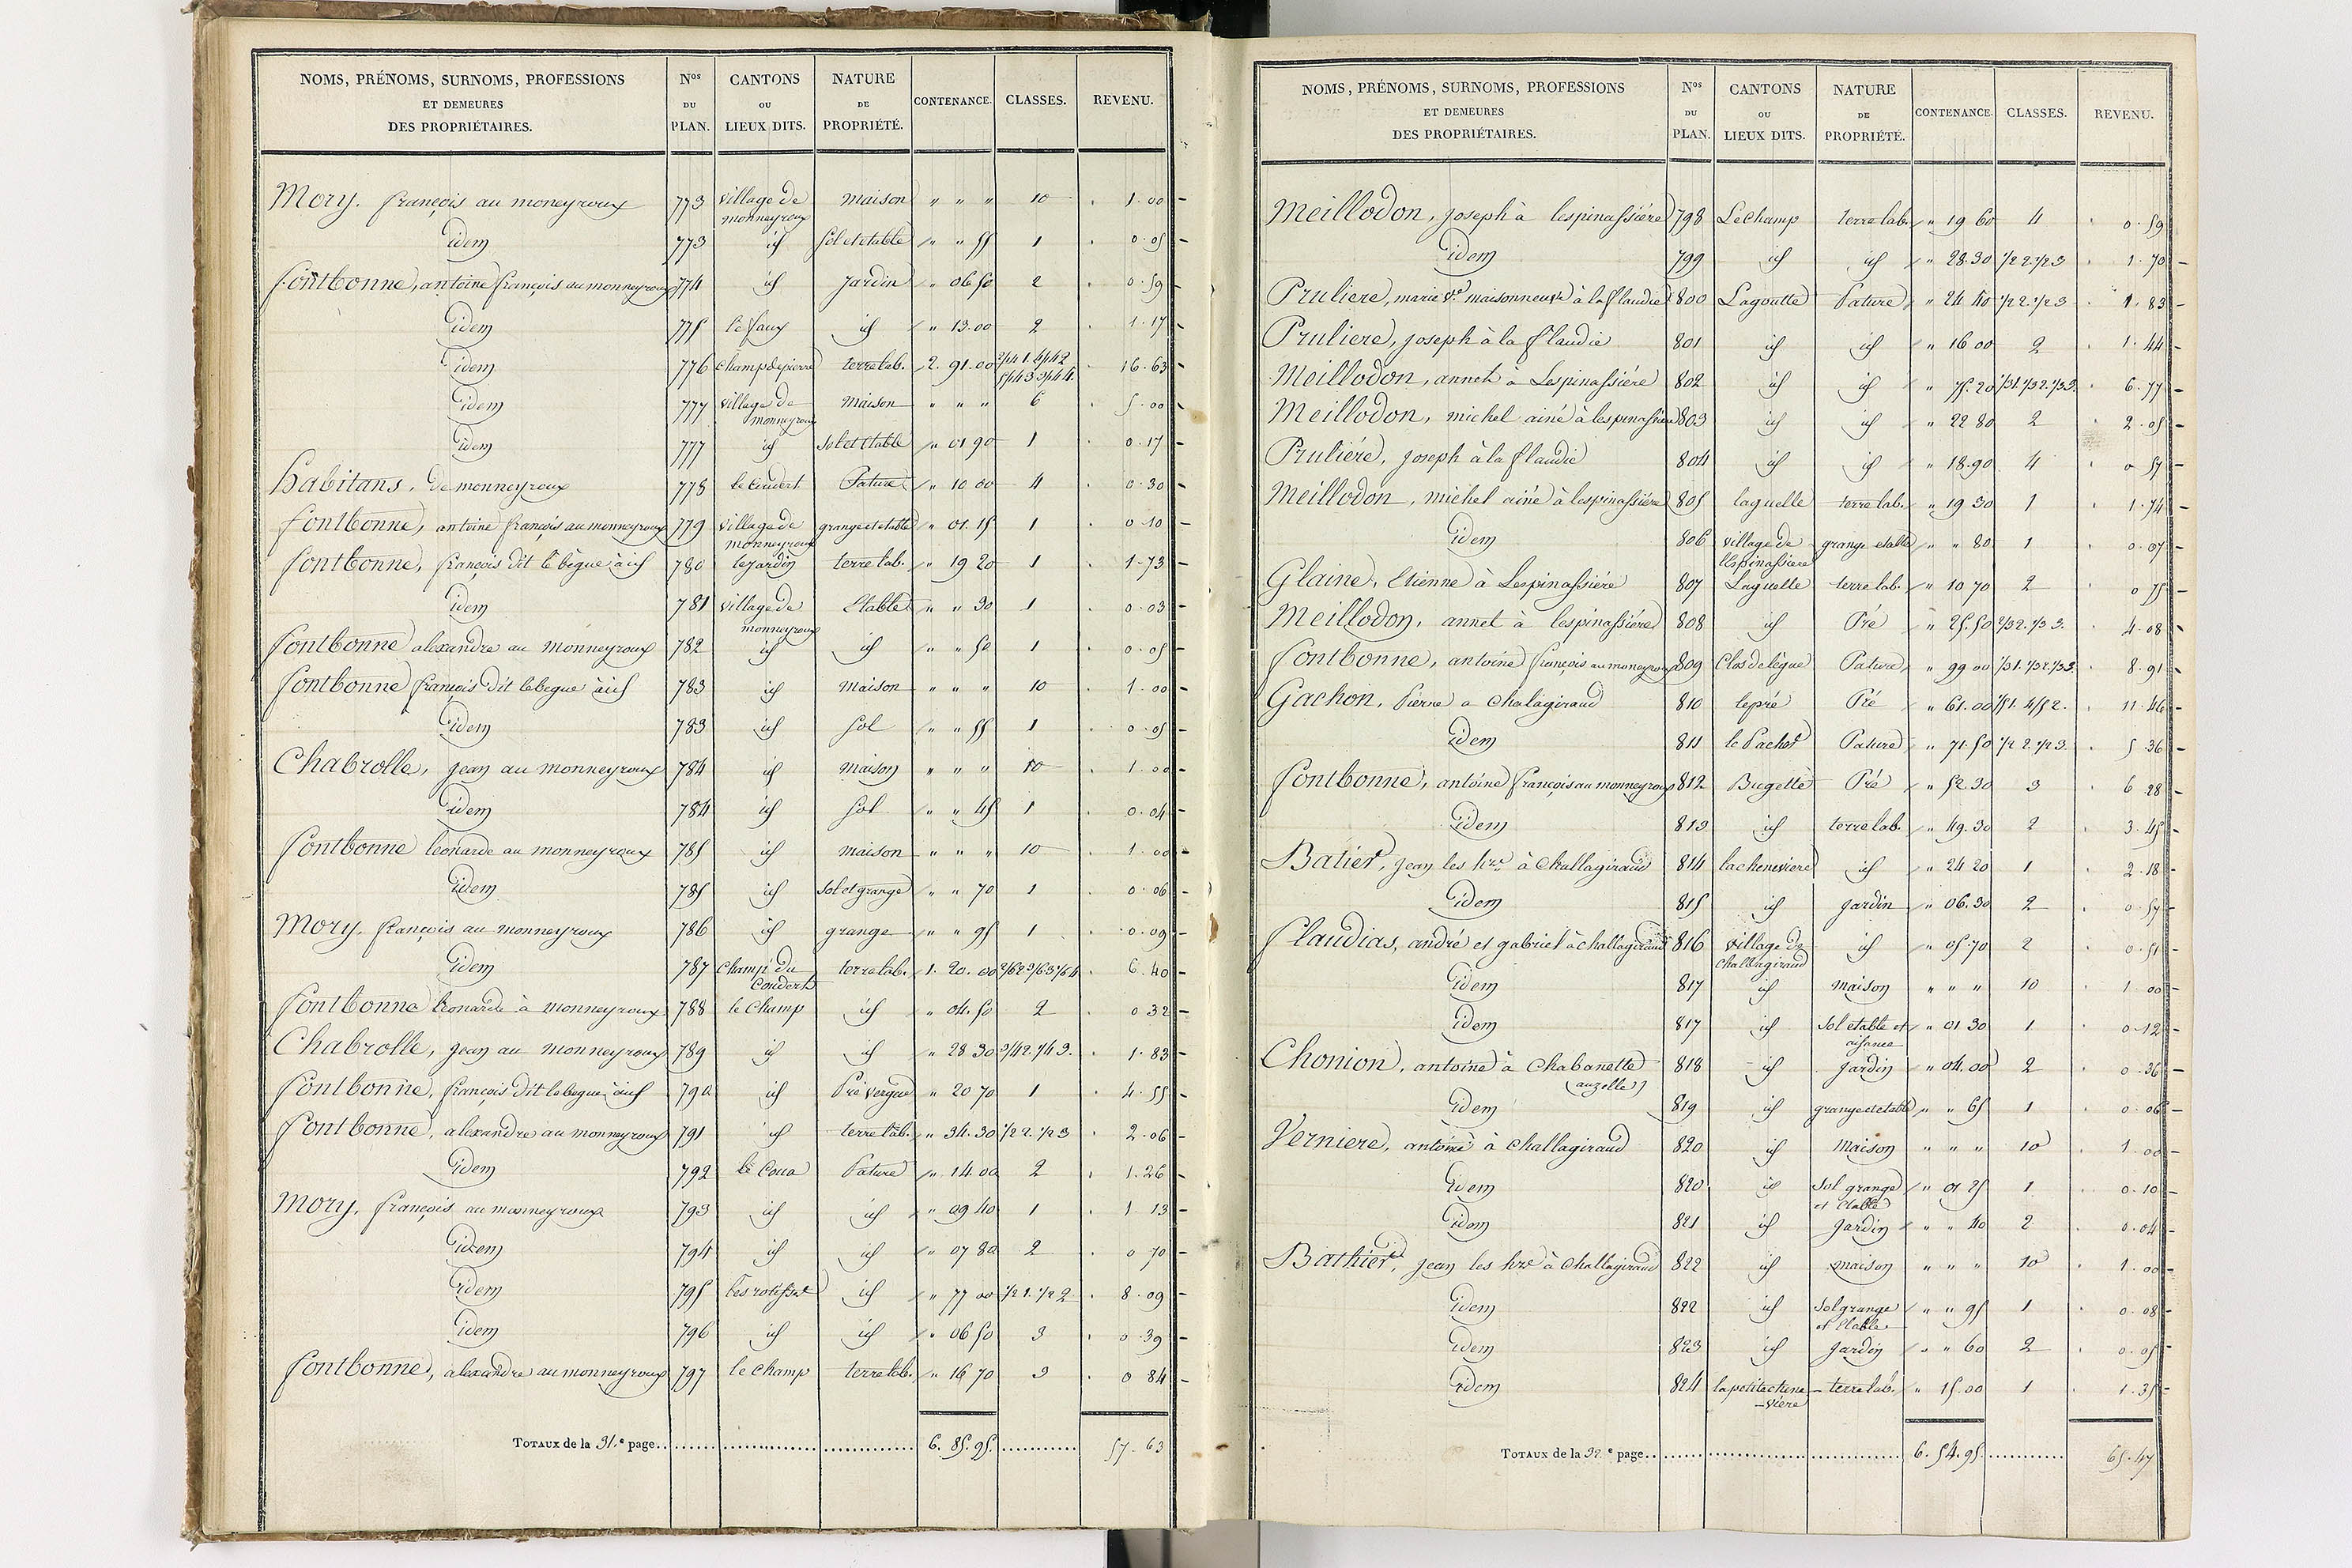 NOMS, PRÉNOMS, SURNOMS, PROFESSIONS ET DEMEURES DES PROPRIÉTAIRES. Nos DU PLAN. CANTONS OU LIEUX DITS. NATURE DE PROPRIÉTÉ. CONTENANCE. CLASSES. REVENU.
Mory. françois au moneyroux 773 village de monneyroux maison " " " 10 1.00
Idem 773 id sol et étable " " 55 1 0.05
fontbonne, antoine françois au monneyroux 774 id jardin " 06 50 2 0.59
Idem 775 le faux id " 13.00 2 1.17
Idem 776 champ de pierre terre lab. 2. 91.00 16.63
Idem 777 village de monneyroux maison " " " 6 5.00
Idem 777 id sol et étable " 01 90 1 0.17
habitans, de monneyroux 778 le Coudert Pature " 10 00 4 0.30
fontbonne, antoine françois au monneyroux 779 village de monneyroux grange et étable " 01.15 1 0 10
fontbonne, françois dit le bègue à id 780 le jardin terre lab. " 19 20 1 1-73
Idem 781 village de monneyroux Etable " " 30 1 0.03
fontbonne alexandre au monneyroux 782 id id " " 50 1 0.05
fontbonne françois dit lebegue à id 783 id maison " " " 10 1.00
Idem 783 id sol " " 55 1 0.05
Chabrolle, jean au monneyroux 784 id maison " " " 10 1.00
Idem 784 id sol " " 45 1 0.04
fontbonne leonarde au monneyroux 785 id maison " " " 10 1.00
Idem 785 id sol et grange " " 70 1 0.06
Mory. françois au monneyroux 786 id grange " " 95 1 0.09
Idem 787 champ du Coudert terre lab. 1. 20. 00 2/6 2 3/6 3 1/6 4 6.40
fontbonne leonarde à monneyroux 788 le champ id " 04.50 2 0 32
Chabrolle, jean au monneyroux 789 id id " 28 30 3/4 2. 1/4 3. 1.83
fontbonne, françois dit lebegue à id 790 id Pré verger " 20 70 1 4.55
fontbonne, alexandre au monneyroux 791 id terre lab. " 34.30 1/2 2. 1/2 3 2.06
Idem 792 le Coua Pature " 14.00 2 1.26
Mory, françois au monneyroux 793 id id " 09 40 1 1 13
Idem 794 id id " 07 80 2 0 70
Idem 795 id " 77 00 1/2 1. 1/2 2 8.09
Idem 796 id id " 06 50 3 0.39
fontbonne, alexandre au monneyroux 797 le champ terre lab. " 16 70 3 0 84
TOTAUX de la 31.e page 6. 85. 95. 57-63
NOMS, PRÉNOMS, SURNOMS, PROFESSIONS ET DEMEURES DES PROPRIÉTAIRES. Nos DU PLAN. CANTONS OU LIEUX DITS. NATURE DE PROPRIÉTÉ. CONTENANCE. CLASSES. REVENU.
Meillodon, joseph à lespinassière 798 Le champ terre lab. " 19 60 4 0.59
Idem 799 id id " 28.30 1/2 2. 1/2 3 1.70
Pruliere, marie ve maisonneuve à la flaudie 800 Lagoutte Pature " 24 40 1/2 2. 1/2 3 1.83
Pruliere, joseph à la flaudie 801 id id " 16 00 2 1.44
Meillodon, annet à Lespinassière 802 id id " 75.20 1/3 1. 1/3 2. 1/3 3. 6.77
Meillodon, michel ainé à lespinassière 803 id id " 22 80 2 2.05
Pruliére, joseph à la flaudie 804 id id " 18.90 4 0 57
Meillodon, michel ainé à lespinassière 805 laguelle terre lab. " 19 30 1 1.74
Idem 806 village de lespinassiere grange etable " " 80 1 0.07
Glaine, Etienne à Lespinassière 807 Laguelle terre lab. " 10 70 2 0 75
Meillodon, annet à lespinassière 808 id Pré " 25.50 2/3 2. 1/3 3. 4.08
fontbonne, antoine françois au monneyroux 809 Clos de lègue Pature " 99 00 1/3 1. 1/3 2. 1/3 3. 8.91
Gachon, Pierre a Chalagiraud 810 le pré Pré " 61.00 1/5 1. 4/5 2. 11.46
Idem 811 le Pacher Pature " 71.50 1/2 2. 1/2 3. 5 36
fontbonne, antoine françois au monneyroux 812 Bugette Pré " 52 30 3 6 28
Idem 813 id terre lab. " 49.30 2 3.45
Batier, jean les hers à Challagiraud 814 la cheneviere id " 24 20 1 2.18
Idem 815 id jardin " 06.30 2 0.57
flaudias, andré et gabriel à challagiraud 816 village de challagiraud id " 05.70 2 0.51
Idem 817 id maison " " " 10 1 00
Idem 817 id sol etable et aisance " 01 30 1 0.12
Chonion, antoine à Chabanette (auzelles) 818 id jardin " 04.00 2 0.36
Idem 819 id grange et etable " " 65 1 0.06
Verniere, antoine à challagiraud 820 id maison " " " 10 1.00
Idem 820 id sol grange et étable " 01 25 1 0.10
Idem 821 id jardin " " 40 2 0.04
Bathier, jean les hers à challagiraud 822 id maison " " " 10 1.00
Idem 822 id sol grange et étable " " 95 1 0.08
Idem 823 id jardin " " 60 2 0.05
Idem 824 la petite chene-viere terre lab. " 15.00 1 1.35
TOTAUX de la 32.e page 6. 54. 95. 65.47